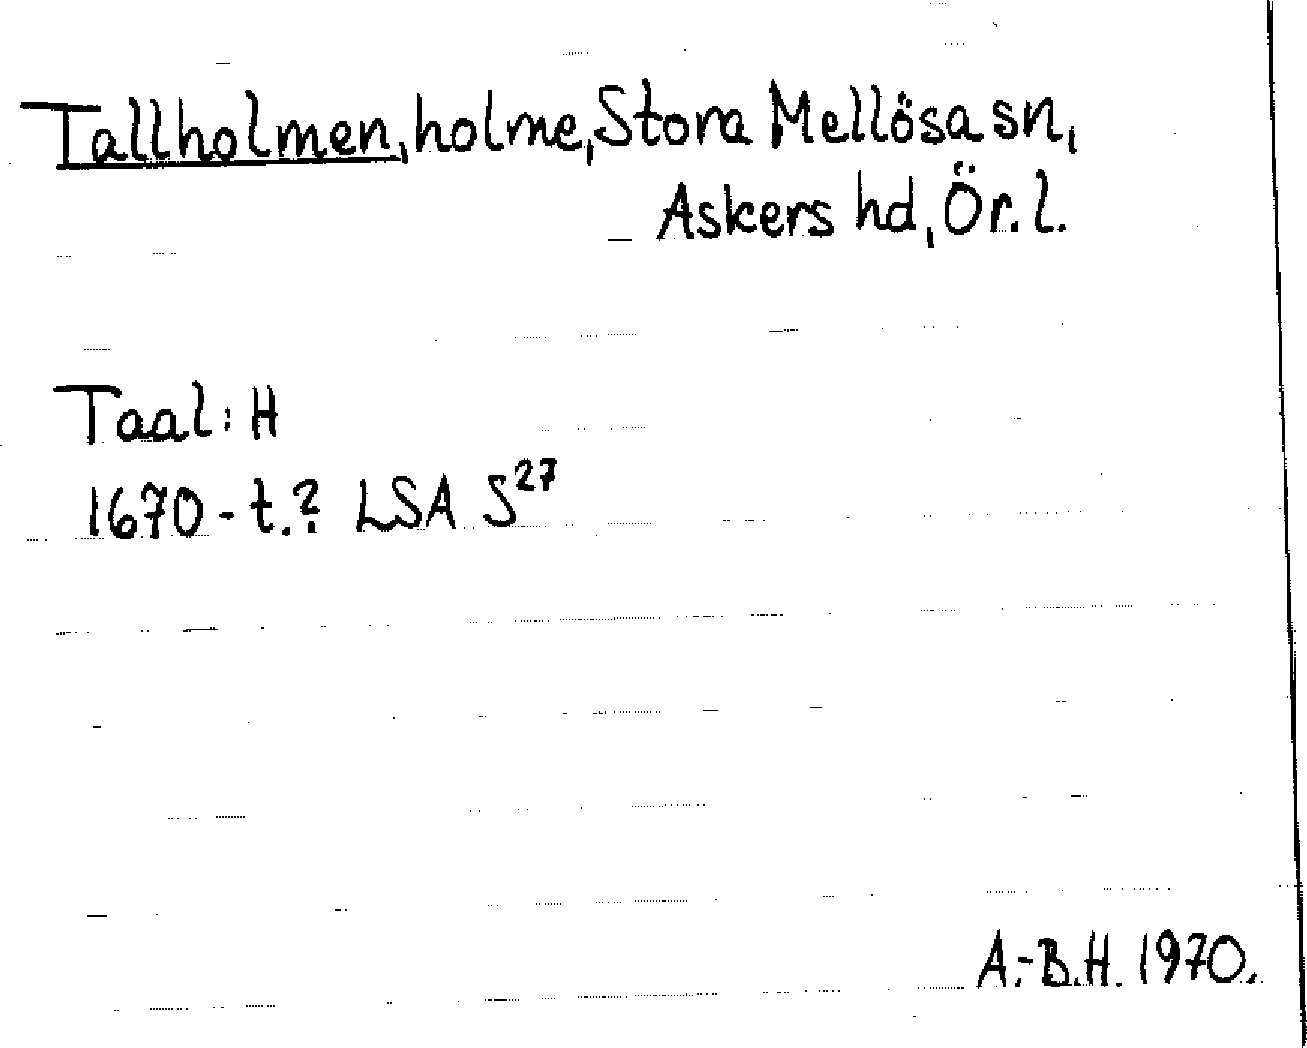 Tallholmen, holme, Stora Mellösa sn,
Askers hd, Ör. l.
Taal: H
1670-t.? LSA S27
A.-B.H. 1970.